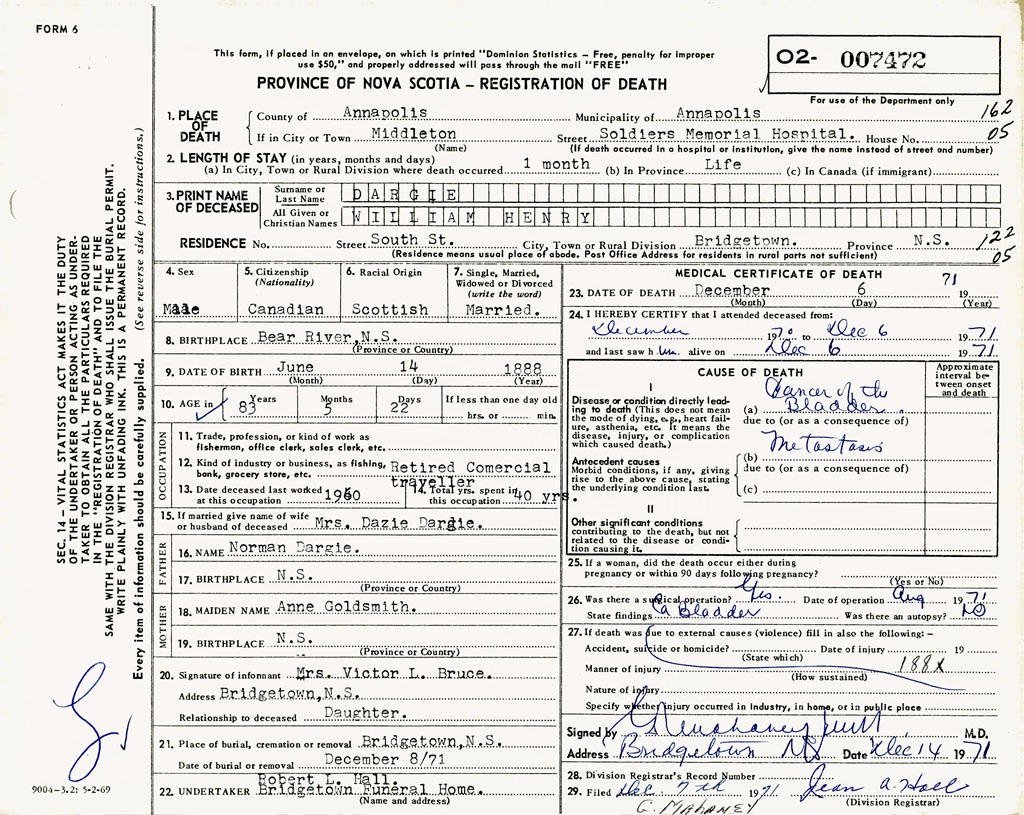 FORM 6
This form, if placed in an envelope, on which is printed "Dominion Statistics — Free, penalty for improper
use $50," and properly addressed will pass through the mail "FREE"
PROVINCE OF NOVA SCOTIA — REGISTRATION OF DEATH
02- 007472
For use of the Department only
1. PLACE OF DEATH
County of Annapolis Municipality of Annapolis 162
If in City or Town Middleton Street Soldiers Memorial Hospital. House No. 05
(Name) (If death occurred in a hospital or institution, give the name instead of street and number)
2. LENGTH OF STAY (in years, months and days)
(a) In City, Town or Rural Division where death occurred 1 month (b) In Province Life (c) In Canada (if immigrant)
3. PRINT NAME OF DECEASED
Surname or Last Name DARGIE
All Given or Christian Names WILLIAM HENRY
RESIDENCE No. Street South St. City, Town or Rural Division Bridgetown. Province N.S. 122
(Residence means usual place of abode. Post Office Address for residents in rural parts not sufficient) 05
4. Sex
Male
5. Citizenship (Nationality)
Canadian
6. Racial Origin
Scottish
7. Single, Married, Widowed or Divorced (write the word)
Married.
8. BIRTHPLACE Bear River,N.S.
(Province or Country)
9. DATE OF BIRTH June 14 1888
(Month) (Day) (Year)
10. AGE in Years 83 Months 5 Days 22 If less than one day old hrs. or min.
OCCUPATION
11. Trade, profession, or kind of work as fisherman, office clerk, sales clerk, etc.
12. Kind of industry or business, as fishing, bank, grocery store, etc. Retired Comercial traveller
13. Date deceased last worked at this occupation 1960
14. Total yrs. spent in this occupation 40 yrs.
15. If married give name of wife or husband of deceased Mrs. Dazie Dargie.
FATHER
16. NAME Norman Dargie.
17. BIRTHPLACE N.S.
(Province or Country)
MOTHER
18. MAIDEN NAME Anne Goldsmith.
19. BIRTHPLACE N.S.
(Province or Country)
20. Signature of informant Mrs. Victor L. Bruce.
Address Bridgetown,N.S.
Relationship to deceased Daughter.
21. Place of burial, cremation or removal Bridgetown,N.S.
Date of burial or removal December 8/71
22. UNDERTAKER Robert L. Hall. Bridgetown Funeral Home.
(Name and address)
MEDICAL CERTIFICATE OF DEATH
23. DATE OF DEATH December 6 19 71
(Month) (Day) (Year)
24. I HEREBY CERTIFY that I attended deceased from:
December 1970 to Dec 6 1971
and last saw h im alive on Dec 6 1971
CAUSE OF DEATH
Approximate interval between onset and death
I
Disease or condition directly leading to death (This does not mean the mode of dying, e.g., heart failure, asthenia, etc. It means the disease, injury, or complication which caused death.)
(a) Cancer of the Bladder
due to (or as a consequence of)
Metastasis
Antecedent causes
Morbid conditions, if any, giving rise to the above cause, stating the underlying condition last.
(b)
due to (or as a consequence of)
(c)
II
Other significant conditions
contributing to the death, but not related to the disease or condition causing it.
25. If a woman, did the death occur either during
pregnancy or within 90 days following pregnancy?
(Yes or No)
26. Was there a surgical operation? Yes. Date of operation Aug 1971
State findings Ca Bladder Was there an autopsy? No
27. If death was due to external causes (violence) fill in also the following:—
Accident, suicide or homicide? Date of injury 19
(State which)
Manner of injury 188X
(How sustained)
Nature of injury
Specify whether injury occurred in industry, in home, or in public place
Signed by M.D.
Address Bridgetown NS Date Dec 14 1971
28. Division Registrar's Record Number
29. Filed Dec. 7th 1971 Jean A. Hall
(Division Registrar)
G. MAHANEY
SEC. 14 — VITAL STATISTICS ACT MAKES IT THE DUTY
OF THE UNDERTAKER OR PERSON ACTING AS UNDER-
TAKER TO OBTAIN ALL THE PARTICULARS REQUIRED
IN THE "REGISTRATION OF DEATH" AND TO FILE THE
SAME WITH THE DIVISION REGISTRAR WHO SHALL ISSUE THE BURIAL PERMIT.
WRITE PLAINLY WITH UNFADING INK. THIS IS A PERMANENT RECORD.
Every item of information should be carefully supplied. (See reverse side for instructions.)
9004-3.2: 5-2-69